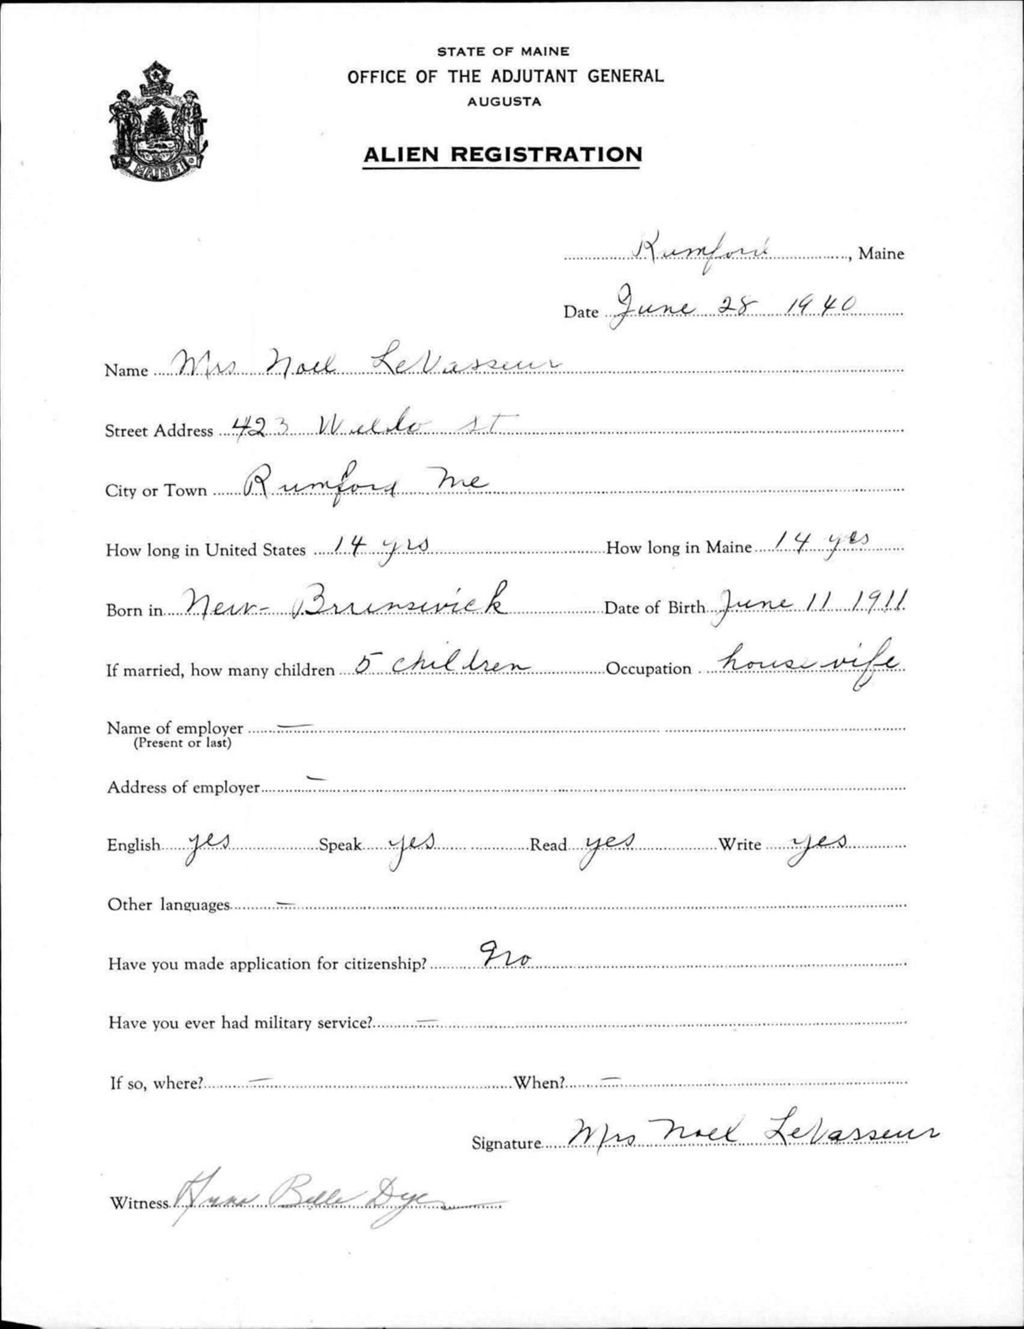 STATE OF MAINE
OFFICE OF THE ADJUTANT GENERAL
AUGUSTA
ALIEN REGISTRATION
MAINE
Rumford, Maine
Date June 28 1940
Name Mrs Noel LeVasseur
Street Address 423 Waldo St
City or Town Rumford Me
How long in United States 14 yrs How long in Maine 14 yrs
Born in New-Brunswick Date of Birth June 11 1911
If married, how many children 5 children Occupation housewife
Name of employer —
(Present or last)
Address of employer —
English yes Speak yes Read yes Write yes
Other languages —
Have you made application for citizenship? No
Have you ever had military service? —
If so, where? — When? —
Signature Mrs Noel LeVasseur
Witness Anna Belle Dye